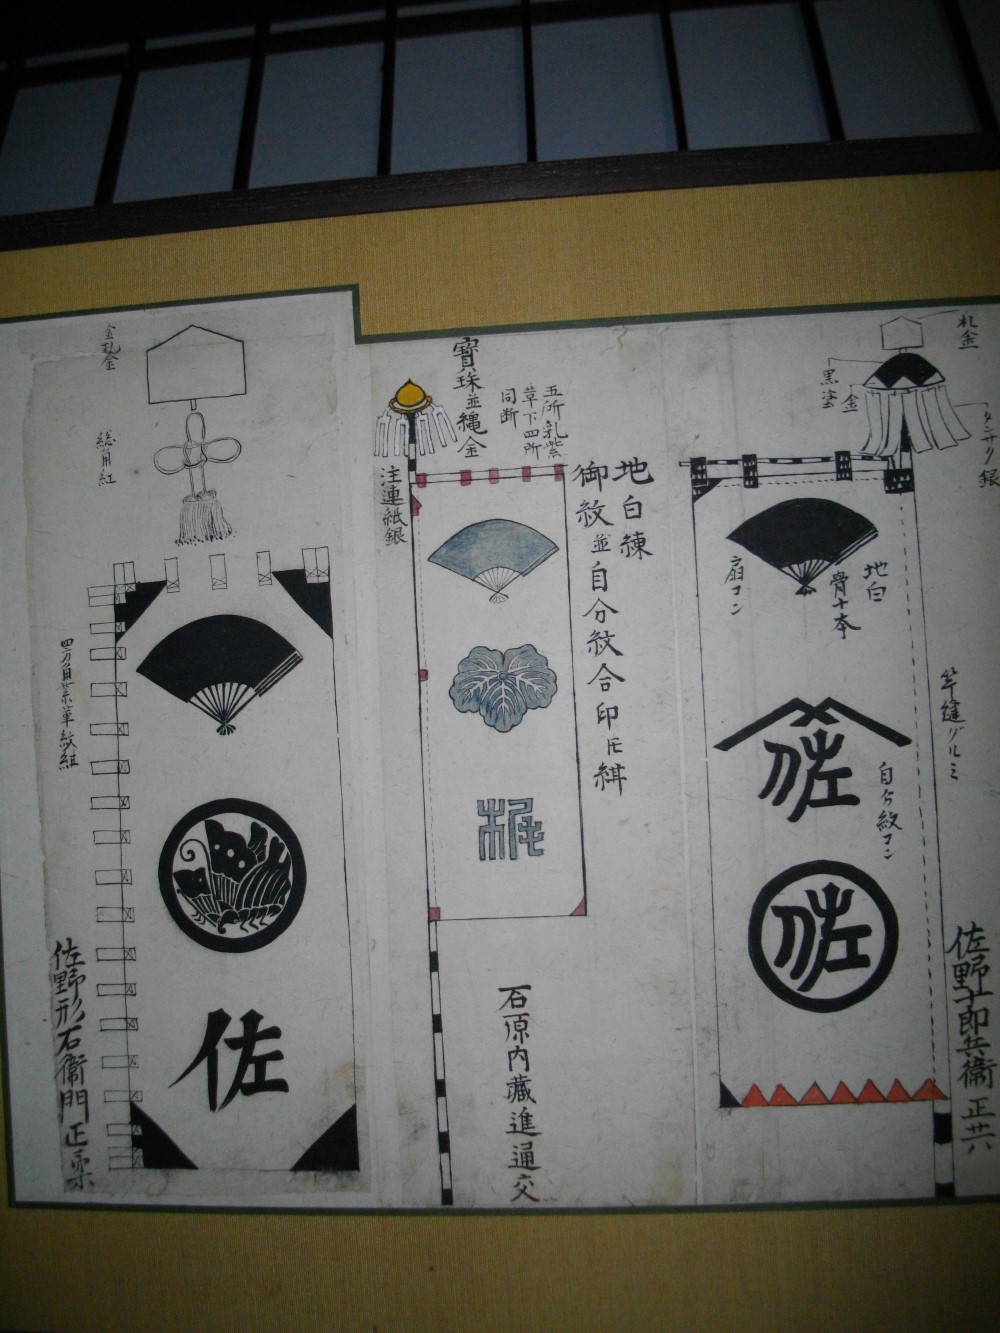 札金
黒塗
金
タンサク銀
地白
骨十本
扇コン
竿縫グルミ
佐
自分紋コン
佐
佐野十郎兵衛正共
寶珠並縄金
五所乳紫
草下四所
同断
注連紙銀
地白練
御紋並自分紋合印
梶
石原内藏進通交
金札金
総角紅
四方角紫革紋組
佐
佐野形右衛門正